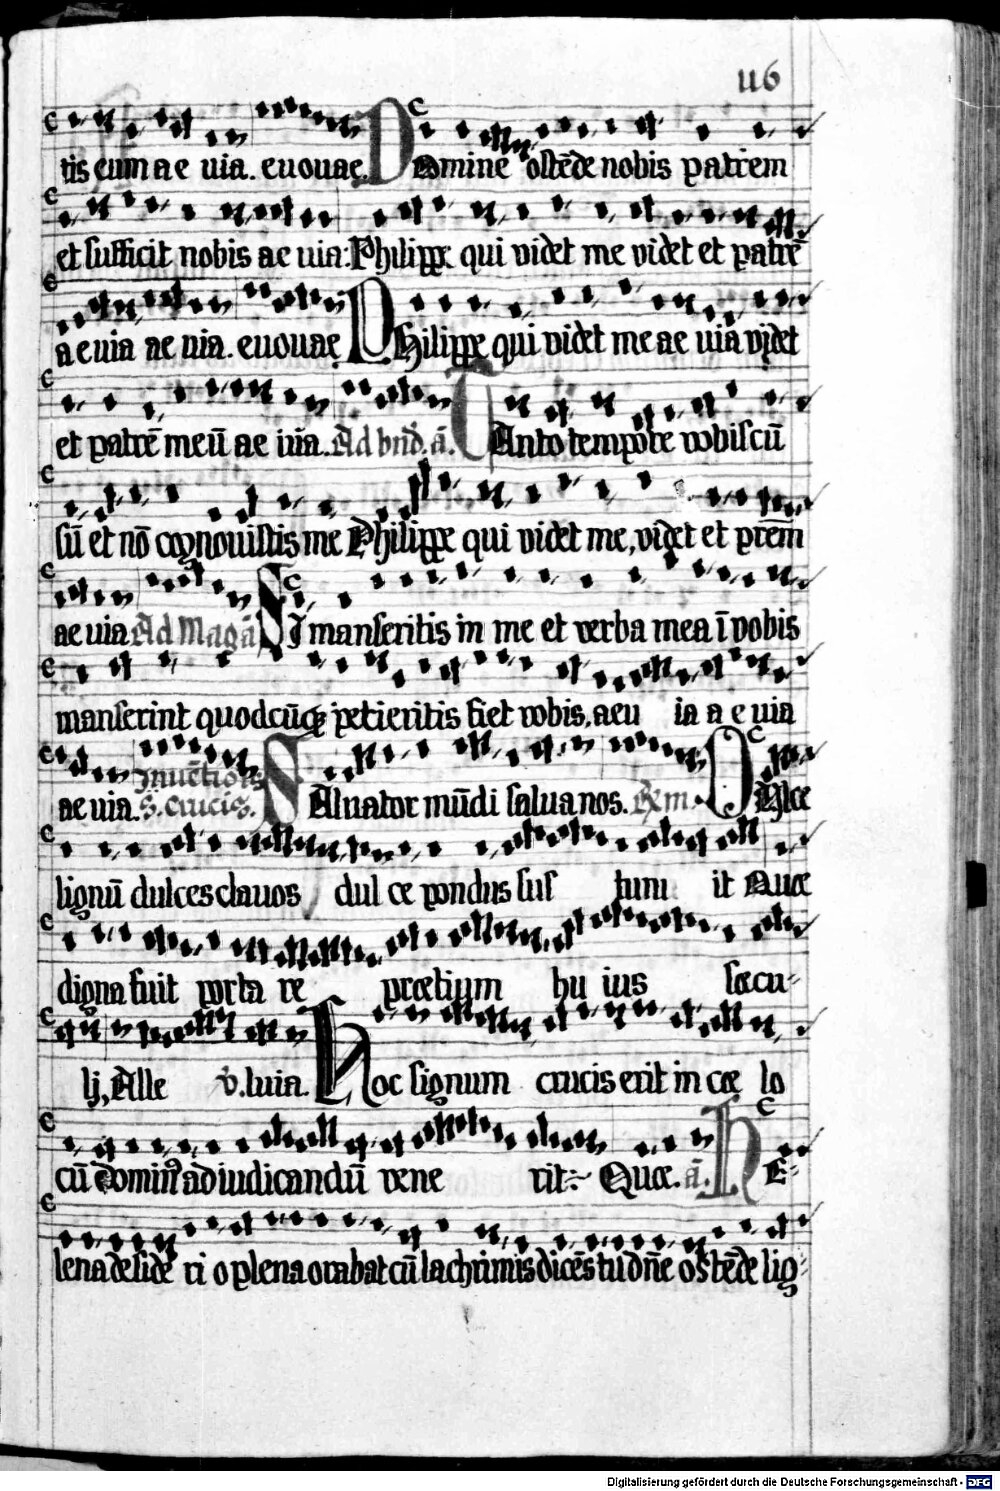 116
tis eum ae uia. euouae. Domine ostēde nobis patrem
et sufficit nobis ae uia: Philippe qui videt me videt et patrē
aeuia ae uia. euouae. Philippe qui videt me ae uia videt
et patrē meū ae uia. Ad bnd. ā. Tanto tempore vobiscū
sū et nō cognouistis me Philippe qui videt me, videt et prēm
ae uia Ad Mag ā Si manseritis in me et verba mea ī vobis
manserint quodcūq petieritis fiet vobis, aeu ia a e uia
Inuētionis
ae uia. S. crucis. Saluator mūdi salua nos. Dulce
lignū dulces clauos dul ce pondus sus tinu it Quæ
digna fuit porta re prætium hu ius sæcu-
lj, Alle v. luia. Hoc signum crucis erit in cæ lo
cū domin9 ad iudicandū vene rit: Quæ. ā. He-
lena deside ri o plena orabat cū lachrimis dicēs tu dn̄e ostēde lig-
Digitalisierung gefördert durch die Deutsche Forschungsgemeinschaft - DFG